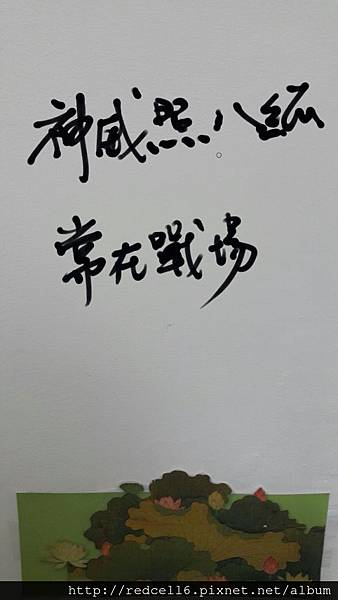 神威照八紘
常在戰場
http://redcell6.pixnet.net/album